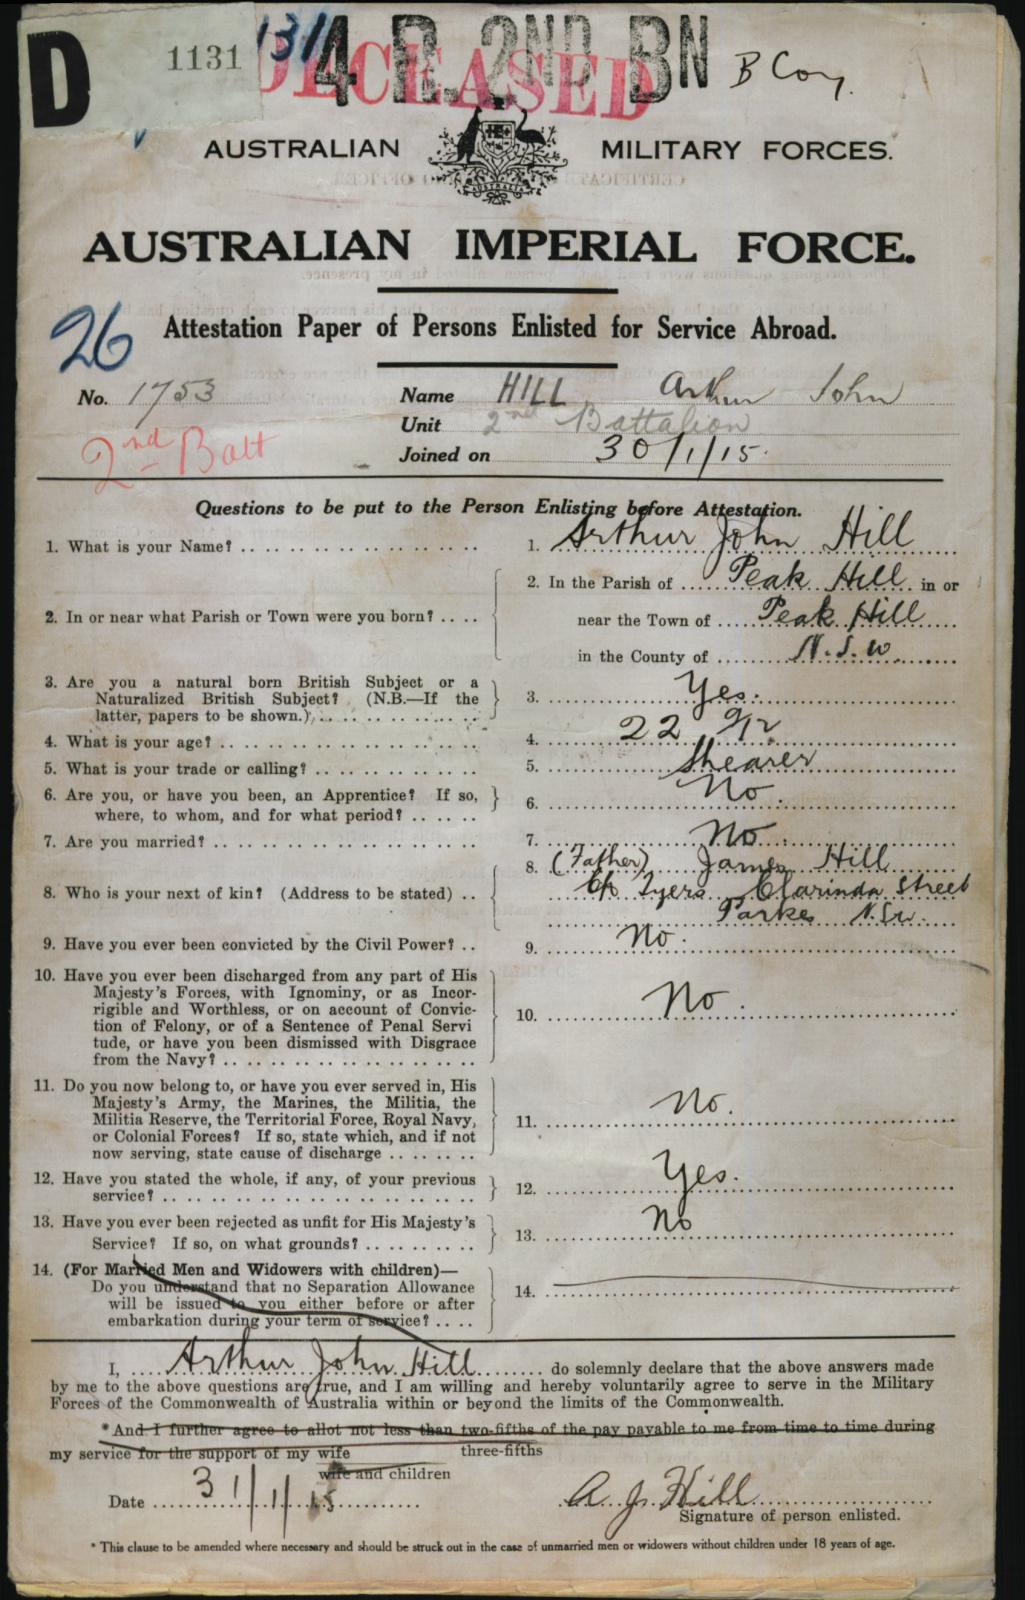 D
1131
1311
DECEASED
4 R. 2ND BN
B Coy.
AUSTRALIAN MILITARY FORCES.
AUSTRALIA
AUSTRALIAN IMPERIAL FORCE.
26
Attestation Paper of Persons Enlisted for Service Abroad.
No. 1753
Name HILL Arthur John
Unit 2nd Battalion
2nd Batt
Joined on 30/1/15.
Questions to be put to the Person Enlisting before Attestation.
1. What is your Name? 1. Arthur John Hill
2. In or near what Parish or Town were you born? 2. In the Parish of Peak Hill in or
near the Town of Peak Hill
in the County of N.S.W.
3. Are you a natural born British Subject or a
Naturalized British Subject? (N.B.—If the
latter, papers to be shown.) 3. Yes.
4. What is your age? 4. 22 9/12
5. What is your trade or calling? 5. Shearer
6. Are you, or have you been, an Apprentice? If so,
where, to whom, and for what period? 6. No.
7. Are you married? 7. No.
8. Who is your next of kin? (Address to be stated) 8. (Father) James Hill
c/o Tyers Clarinda Street
Parkes N.S.W.
9. Have you ever been convicted by the Civil Power? 9. No.
10. Have you ever been discharged from any part of His
Majesty's Forces, with Ignominy, or as Incor-
rigible and Worthless, or on account of Convic-
tion of Felony, or of a Sentence of Penal Servi
tude, or have you been dismissed with Disgrace
from the Navy? 10. No.
11. Do you now belong to, or have you ever served in, His
Majesty's Army, the Marines, the Militia, the
Militia Reserve, the Territorial Force, Royal Navy,
or Colonial Forces? If so, state which, and if not
now serving, state cause of discharge 11. No.
12. Have you stated the whole, if any, of your previous
service? 12. Yes.
13. Have you ever been rejected as unfit for His Majesty's
Service? If so, on what grounds? 13. No
14. (For Married Men and Widowers with children)—
Do you understand that no Separation Allowance
will be issued to you either before or after
embarkation during your term of service? 14.
I, Arthur John Hill do solemnly declare that the above answers made
by me to the above questions are true, and I am willing and hereby voluntarily agree to serve in the Military
Forces of the Commonwealth of Australia within or beyond the limits of the Commonwealth.
*And I further agree to allot not less than two-fifths of the pay payable to me from time to time during
my service for the support of my wife three-fifths
wife and children
Date 31/1/15
A. J. Hill
Signature of person enlisted.
* This clause to be amended where necessary and should be struck out in the case of unmarried men or widowers without children under 18 years of age.